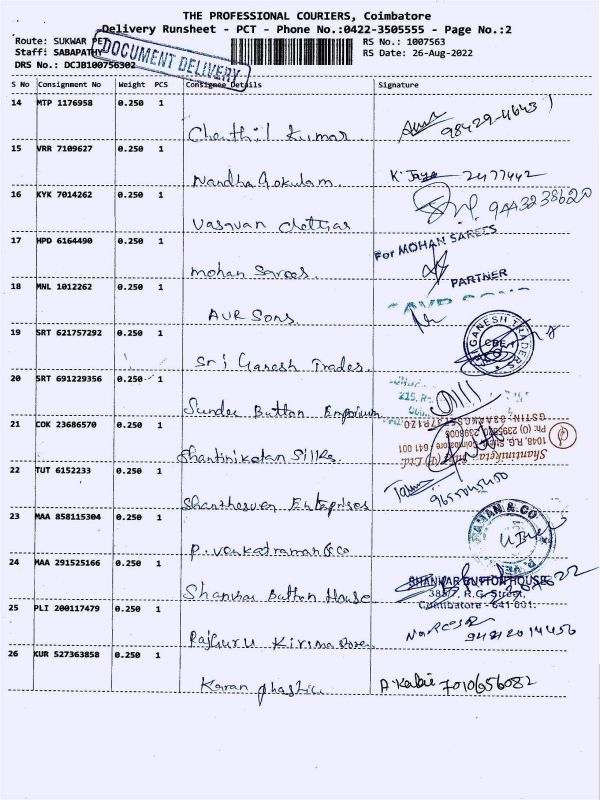 THE PROFESSIONAL COURIERS, Coimbatore
Delivery Runsheet - PCT - Phone No.:0422-3505555 - Page No.:2
Route: SUKWAR PET
RS No.: 1007563
Staff: SABAPATHY
RS Date: 26-Aug-2022
DRS No.: DCJB100756302
DOCUMENT DELIVERY
S No Consignment No Weight PCS Consignee Details Signature
14 MTP 1176958 0.250 1
Kumar 98429-46431
15 VRR 7109627 0.250 1
Nandha Gokulam. K. Jaya 2477442
16 KYK 7014262 0.250 1
Vasavan Chettiar 9443238620
17 HPD 6164490 0.250 1
For MOHAN SAREES
mohan Sarees
PARTNER
18 MNL 1012262 0.250 1
AVR Sons
19 SRT 621757292 0.250 1
SRI GANESH TRADERS
CBE-1
Sri Ganesh Trades
20 SRT 691229356 0.250 1
Sundar Button Emporium
21 COK 23686570 0.250 1
Shantiniketan Silks (P) Ltd.
1048, R.G. Street, Coimbatore 641 001
Shantiniketan Silks.
22 TUT 6152233 0.250 1
Enterprises
23 MAA 858115304 0.250 1
RAMAN & CO
P. Venkatraman & co
24 MAA 291525166 0.250 1
SHANKAR BUTTON HOUSE
R.G. Street,
Coimbatore - 641 001.
Shankar Button House
25 PLI 200117479 0.250 1
Naresh
Rajguru
26 KUR 527363858 0.250 1
Karan A. 7010656082